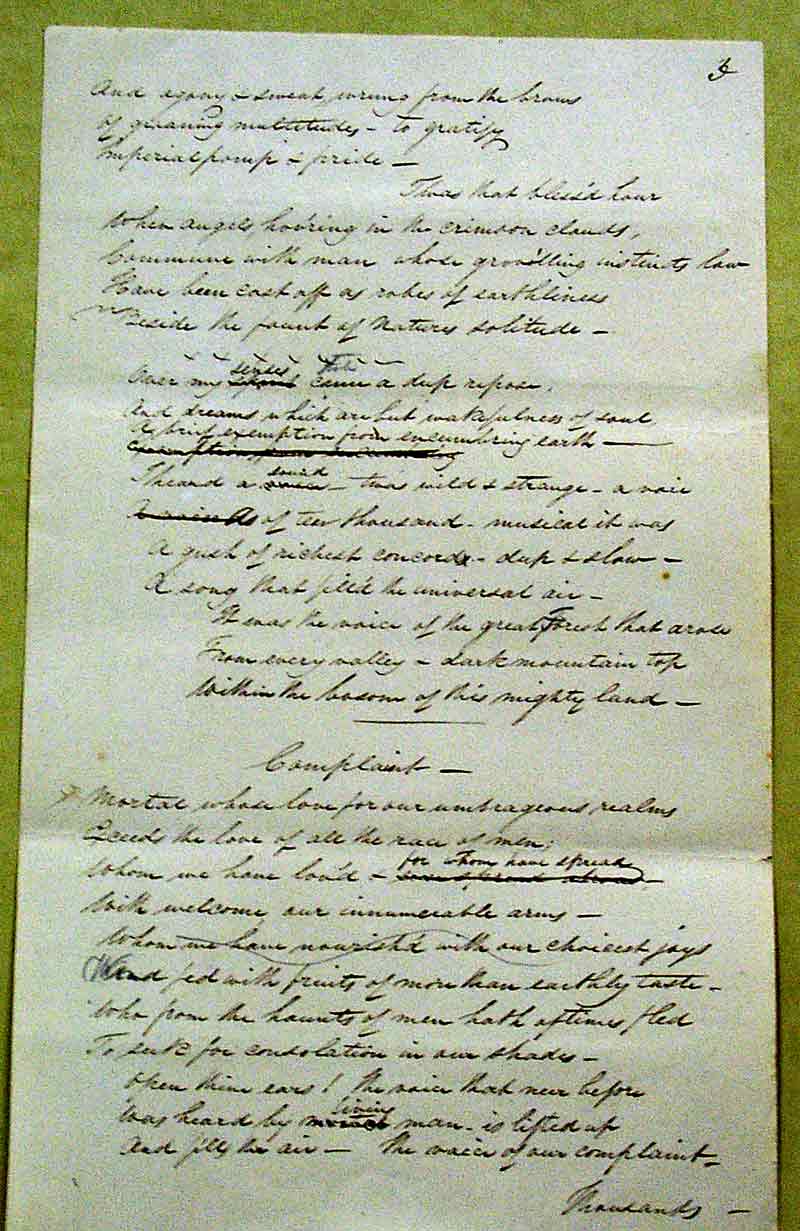 3
And agony & sweat, wrung from the brows
Of groaning multitudes - to gratify
Imperial pomp & pride -
Twas that bless'd hour
When angels, hov'ring in the crimson clouds,
Commune with man whose grov'lling instincts low
Have been cast off as robes of earthliness
Beside the fount of Natures solitude -
senses
Over my came a deep repose,
And dreams which are but wakefulness of soul
A brief exemption from encumbring earth -
exemption from encumbring
sound
I heard a voice - twas wild & strange - a voice
A voice As of ten thousand - musical it was
A gush of richest concords - deep & slow -
A song that fill'd the universal air -
It was the voice of the great Forest that arose
From every valley & dark mountain top
Within the bosom of this mighty land -
Complaint -
Mortal whose love for our umbrageous realms
Exceeds the love of all the race of men;
for whom have spread
Whom we have lov'd - abroad
With welcome our innumerable arms -
Whom we have nourish'd with our choicest joys
And fed with fruits of more than earthly taste -
Who from the haunts of men hath oftimes fled
To seek for consolation in our shades -
Open thine ears! The voice that neer before
living
Was heard by mortal man - is lifted up
And fills the air - the voice of our complaint -
Thousands -